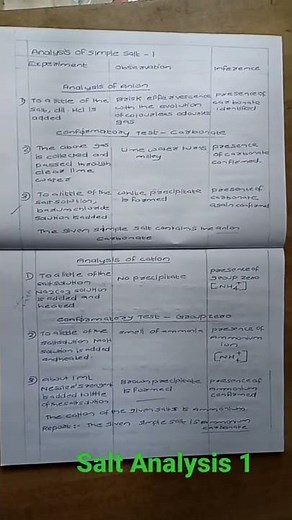 Analysis of simple salt - 1
Experiment Observation Inference
Analysis of anion
1) To a little of the brisk effervescence presence of
salt, dil. Hcl is with the evolution carbonate
added of colourless odourless identified
gas
confirmatory Test - carbonate
2) The above gas Lime water turns presence
is collected and milky of carbonate
passed through confirmed.
clear lime
water
3) To a little of the white precipitate presence of
salt solution, is formed carbonate
barium chloride again confirmed
solution is added
The given simple salt contains the anion
carbonate
Analysis of cation
1) To a little of the No precipitate presence of
salt solution group zero
Na2CO3 solution [NH4+]
is added and
heated
confirmatory Test - Group zero
2) To a little of the smell of ammonia presence of
salt solution NaOH Ammonium
solution is added ion
and heated. [NH4+]
3) About 1 ML Brown precipitate presence of
Nessler's reagent is formed Ammonium
is added to little confirmed
of the salt solution
The cation of the given salt is ammonium.
Report:- The given simple salt is Ammonium
carbonate
Salt Analysis 1